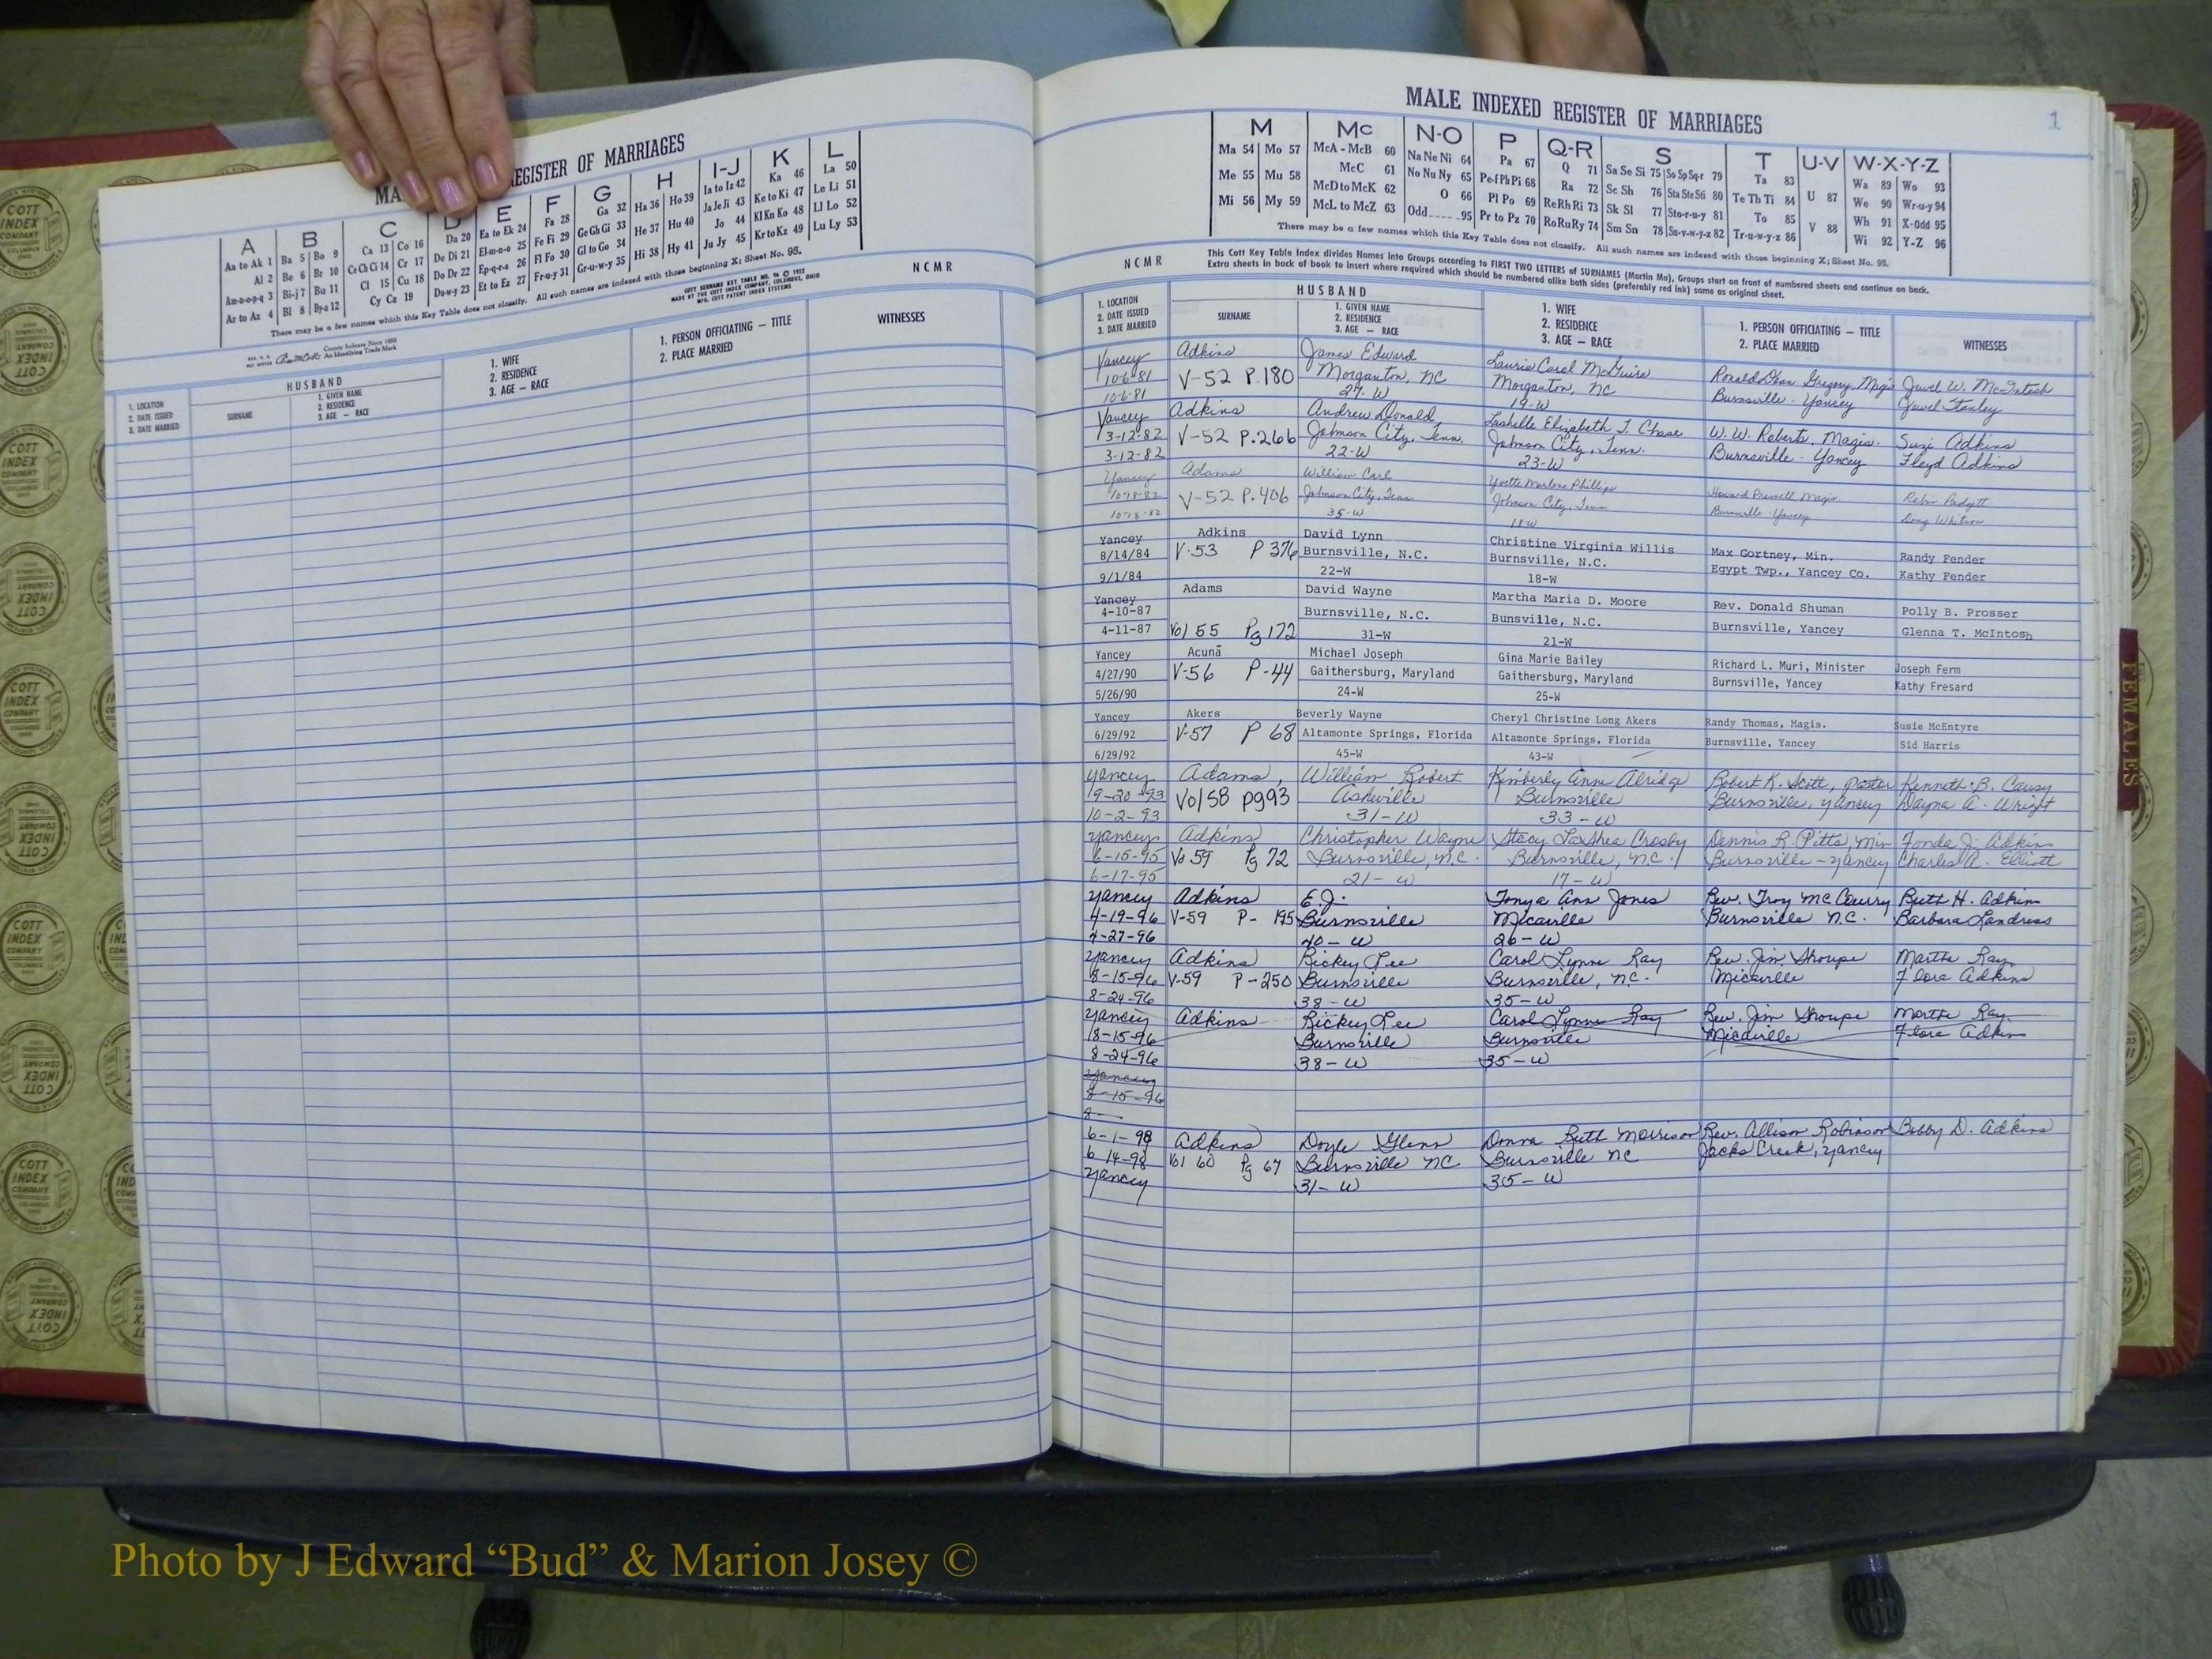 REGISTER OF MARRIAGES
A B C D E F G H I-J K L
Aa to Ak 1 Ba 5 Bo 9 Ca 13 Co 16 Da 20 Ea to Ek 24 Fa 28 Ga 32 Ha 36 Ho 39 Ia to Iz 42 Ka 46 La 50
Al 2 Be 6 Br 10 Ce Ch Ci 14 Cr 17 De Di 21 El-m-n-o 25 Fe Fi 29 Ge Gh Gi 33 He 37 Hu 40 Ja Je Ji 43 Ke to Ki 47 Le Li 51
Am-n-o-p-q 3 Bi-j 7 Bu 11 Cl 15 Cu 18 Do Dr 22 Ep-q-r-s 26 Fl Fo 30 Gl to Go 34 Hi 38 Hy 41 Jo 44 Kl Kn Ko 48 Ll Lo 52
Ar to Az 4 Bl 8 By-z 12 Cy Cz 19 Du-w-y 23 Et to Ez 27 Fr-u-y 31 Gr-u-w-y 35 Ju Jy 45 Kr to Kz 49 Lu Ly 53
There may be a few names which this Key Table does not classify. All such names are indexed with those beginning X; Sheet No. 95.
COTT SURNAME KEY TABLE NO. 96 © 1952
MADE BY THE COTT INDEX COMPANY, COLUMBUS, OHIO
MFG. COTT PATENT INDEX SYSTEMS
County Indexes Since 1888
An Identifying Trade Mark
NCMR
1. LOCATION
2. DATE ISSUED
3. DATE MARRIED
SURNAME
HUSBAND
1. GIVEN NAME
2. RESIDENCE
3. AGE — RACE
1. WIFE
2. RESIDENCE
3. AGE — RACE
1. PERSON OFFICIATING — TITLE
2. PLACE MARRIED
WITNESSES
MALE INDEXED REGISTER OF MARRIAGES
1
M Mc N-O P Q-R S T U-V W-X-Y-Z
Ma 54 Mo 57 McA - McB 60 Na Ne Ni 64 Pa 67 Q 71 Sa Se Si 75 So Sp Sq-r 79 Ta 83 U 87 Wa 89 Wo 93
Me 55 Mu 58 McC 61 No Nu Ny 65 Pe-f Ph Pi 68 Ra 72 Sc Sh 76 Sta Ste Sti 80 Te Th Ti 84 V 88 We 90 Wr-u-y 94
Mi 56 My 59 McD to McK 62 O 66 Pl Po 69 Re Rh Ri 73 Sk Sl 77 Sto-r-u-y 81 To 85 Wh 91 X-Odd 95
McL to McZ 63 Odd 95 Pr to Pz 70 Ro Ru Ry 74 Sm Sn 78 Su-v-w-y-z 82 Tr-u-w-y-z 86 Wi 92 Y-Z 96
There may be a few names which this Key Table does not classify. All such names are indexed with those beginning X; Sheet No. 95.
NCMR
This Cott Key Table Index divides Names into Groups according to FIRST TWO LETTERS of SURNAMES (Martin Ma), Groups start on front of numbered sheets and continue on back.
Extra sheets in back of book to insert where required which should be numbered alike both sides (preferably red ink) same as original sheet.
1. LOCATION
2. DATE ISSUED
3. DATE MARRIED
SURNAME
HUSBAND
1. GIVEN NAME
2. RESIDENCE
3. AGE — RACE
1. WIFE
2. RESIDENCE
3. AGE — RACE
1. PERSON OFFICIATING — TITLE
2. PLACE MARRIED
WITNESSES
Yancey Adkins James Edward Laurie Carol McGuire Ronald Dean Gregory, Magis Jewel W. McIntosh
10-6-81 V-52 P.180 Morganton, NC Morganton, NC Burnsville - Yancey Jewel Stanley
10-6-81 27-W 19-W
Yancey Adkins Andrew Donald Lashelle Elizabeth T. Chase W. W. Roberts, Magis. Suzi Adkins
3-12-82 V-52 P.266 Johnson City, Tenn. Johnson City, Tenn. Burnsville - Yancey Floyd Adkins
3-12-82 22-W 23-W
Yancey Adams William Carl Yvette Marlene Phillips Howard Presnell Magis. Padgett
10-18-82 V-52 P.406 Johnson City, Tenn. Johnson City, Tenn Burnsville - Yancey Doug Whitson
10-18-82 35-W 18W
Yancey Adkins David Lynn Christine Virginia Willis Max Gortney, Min. Randy Fender
8/14/84 V-53 P 376 Burnsville, N.C. Burnsville, N.C. Egypt Twp., Yancey Co. Kathy Fender
9/1/84 22-W 18-W
Yancey Adams David Wayne Martha Maria D. Moore Rev. Donald Shuman Polly B. Prosser
4-10-87 Burnsville, N.C. Bunsville, N.C. Burnsville, Yancey Glenna T. McIntosh
4-11-87 Vol 55 Pg 172 31-W 21-W
Yancey Acuna Michael Joseph Gina Marie Bailey Richard L. Muri, Minister Joseph Ferm
4/27/90 V-56 P-44 Gaithersburg, Maryland Gaithersburg, Maryland Burnsville, Yancey Kathy Fresard
5/26/90 24-W 25-W
Yancey Akers Beverly Wayne Cheryl Christine Long Akers Randy Thomas, Magis. Susie McEntyre
6/29/92 V-57 P 68 Altamonte Springs, Florida Altamonte Springs, Florida Burnsville, Yancey Sid Harris
6/29/92 45-W 43-W
Yancey Adams, William Robert Kimberly Anne Alridge Robert K. Scott, Pastor Kenneth B. Causy
9-20-93 Vol 58 pg 93 Asheville Burnsville Burnsville, Yancey Dayna A. Wright
10-2-93 31-W 33-W
Yancey Adkins Christopher Wayne Stacy LaShea Crosby Dennis R. Pitts, Min Fonda J. Adkins
6-15-95 Vo 59 Pg 72 Burnsville, N.C. Burnsville, N.C. Burnsville - Yancey Charles A. Elliott
6-17-95 21-W 17-W
Yancey Adkins E.J. Tonya Ann Jones Rev. Troy McCourry Ruth H. Adkins
4-19-96 V-59 P- 195 Burnsville Micaville Burnsville N.C. Barbara Landress
4-27-96 40-W 26-W
Yancey Adkins Rickey Lee Carol Lynne Ray Rev. Jim Shoupe Martha Ray
8-15-96 V-59 P-250 Burnsville Burnsville, N.C. Micaville Flora Adkins
8-24-96 38-W 35-W
Yancey Adkins Rickey Lee Carol Lynne Ray Rev. Jim Shoupe Martha Ray
8-15-96 Burnsville Burnsville Micaville Flora Adkins
8-24-96 38-W 35-W
Yancey
8-15-96
8-
6-1-98 Adkins Doyle Glenn Donna Ruth Morrison Rev. Allison Robinson Bobby D. Adkins
6-14-98 Vol 60 Pg 67 Burnsville NC Burnsville NC Jacks Creek, Yancey
Yancey 31-W 35-W
FEMALES
COTT INDEX COMPANY
Photo by J Edward “Bud” & Marion Josey ©